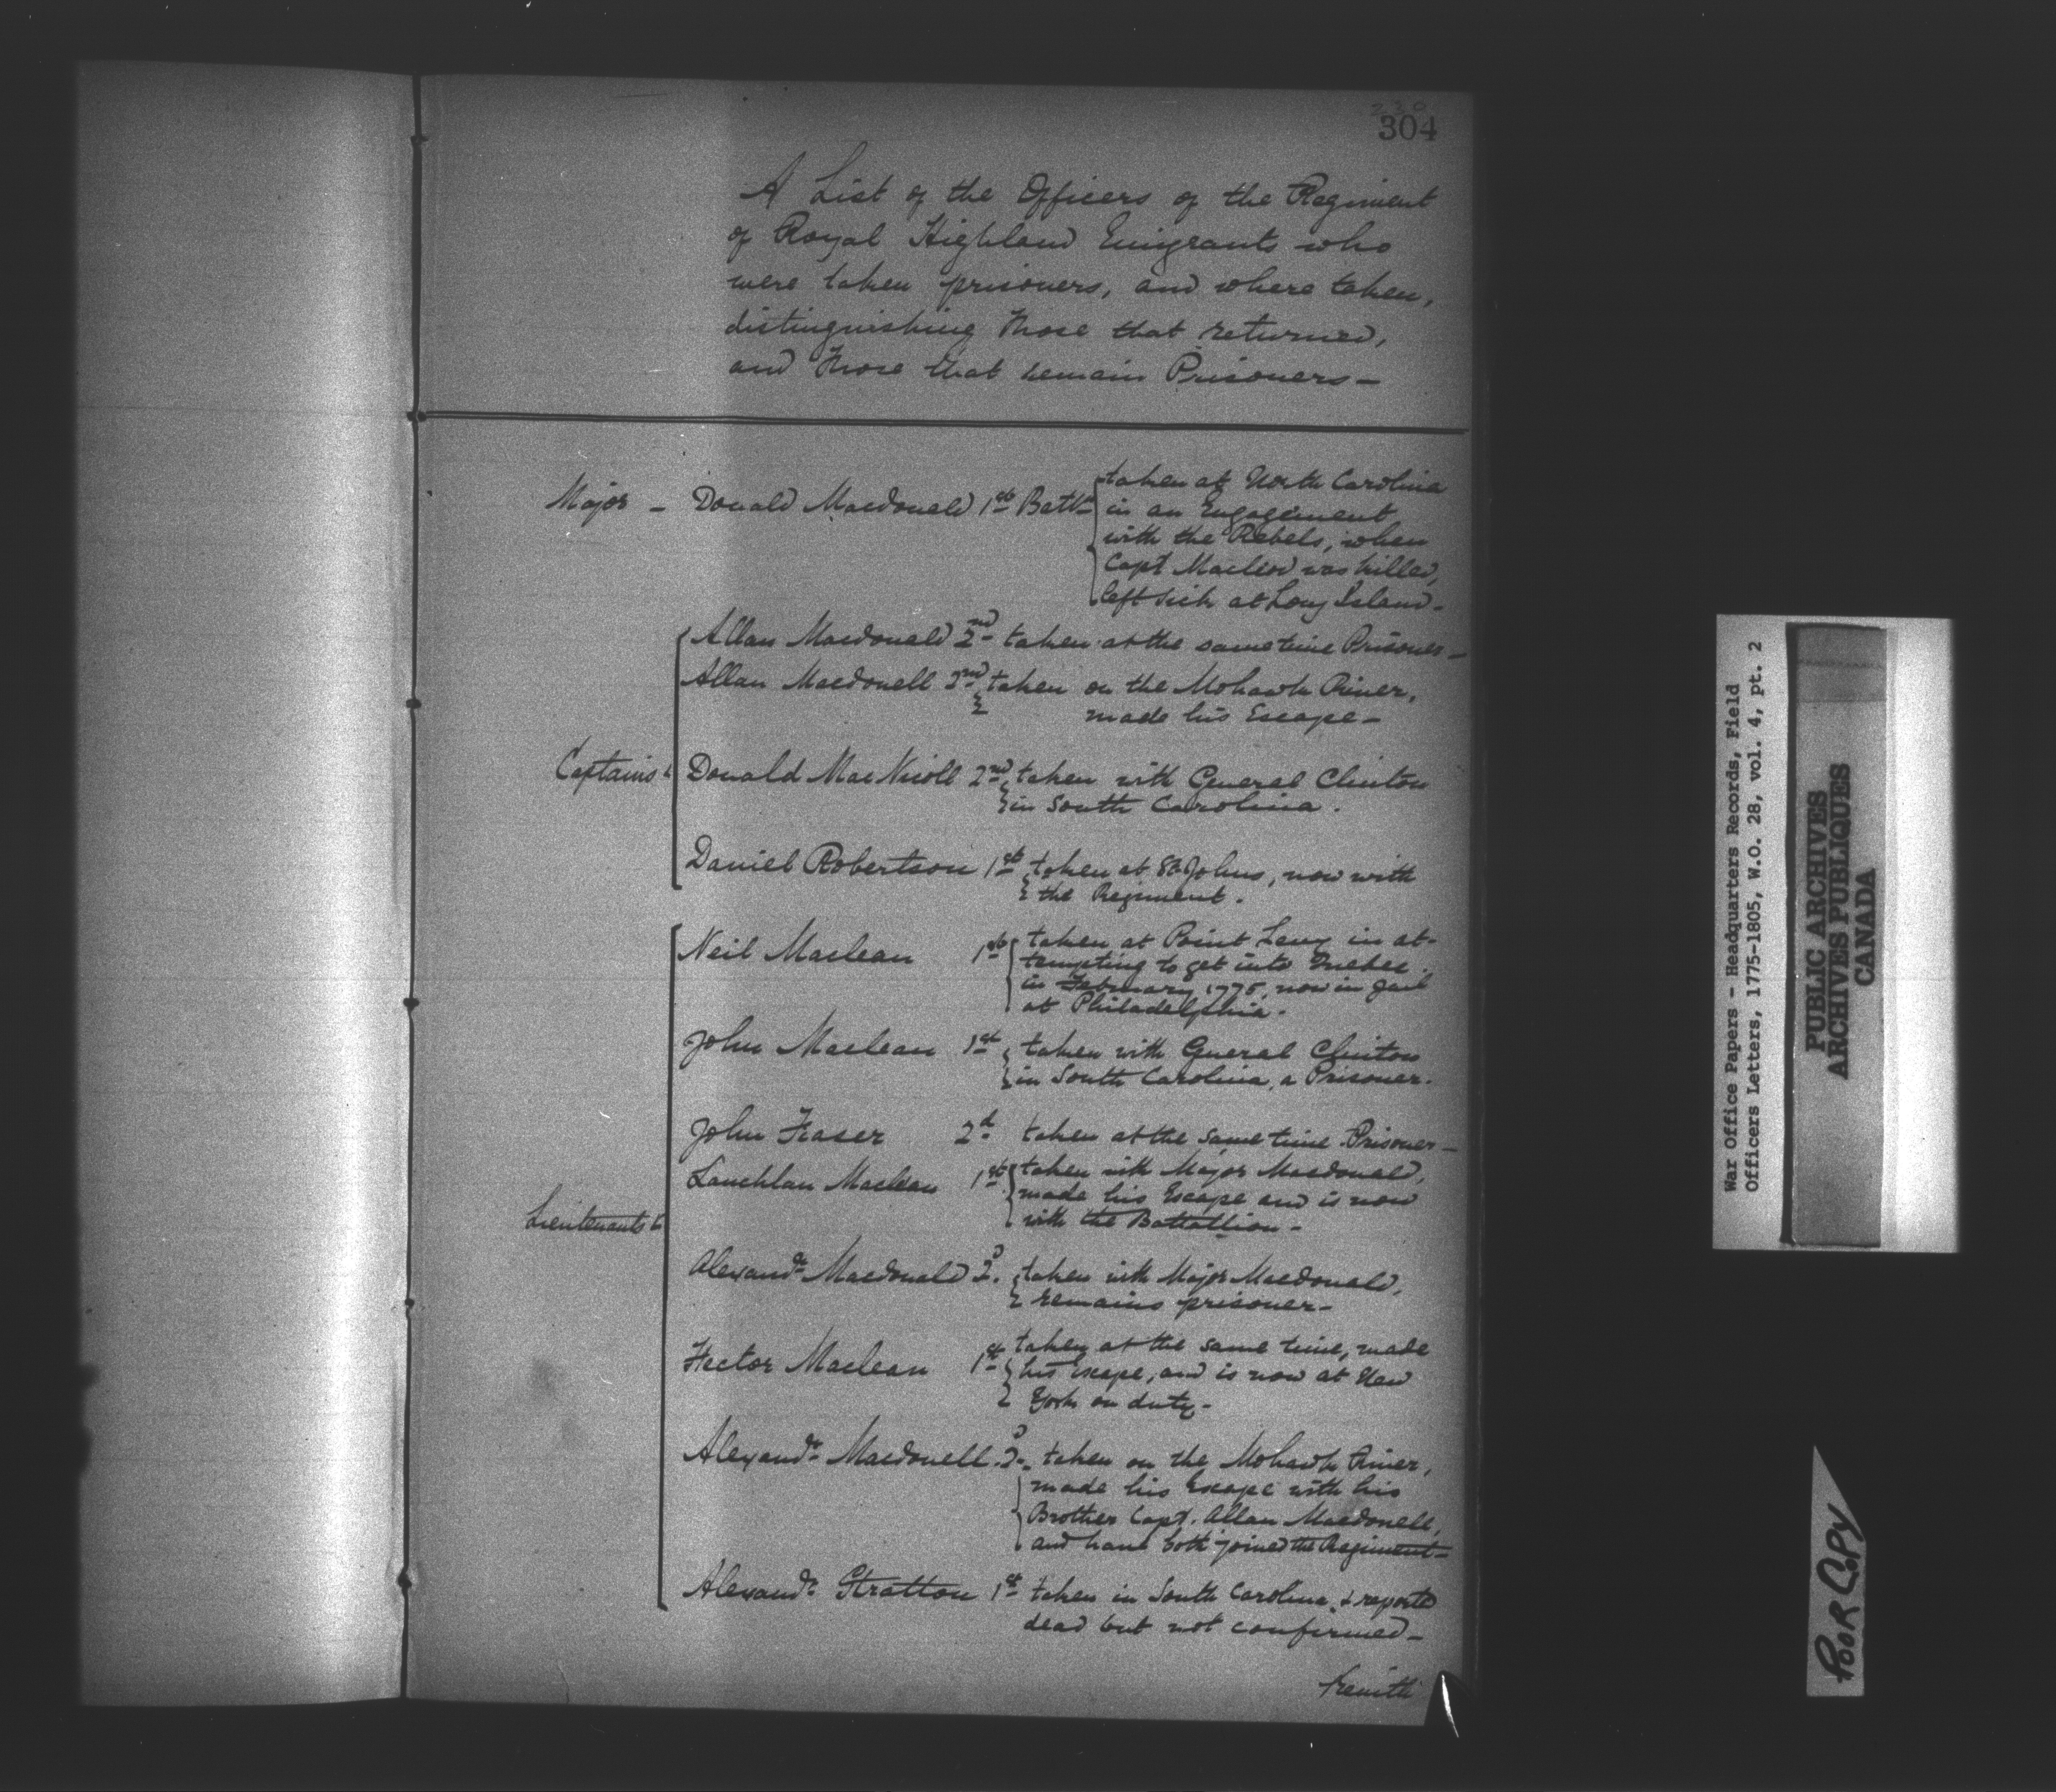 304
A List of the Officers of the Regiment
of Royal Highland Emigrants who
were taken prisoners, and where taken,
distinguishing those that returned,
and those that remain Prisoners —
Major — Donald Macdonald 1st Batt. taken at North Carolina
in an Engagement
with the Rebels, when
Capt Macleod was killed,
left sick at Long Island —
Captains
Allan Macdonald 2nd taken at the same time Prisoner —
Allan Macdonell 2nd taken on the Mohawk River,
made his Escape —
Donald MacNicoll 2nd taken with General Clinton
in South Carolina.
Daniel Robertson 1st taken at St Johns, now with
the Regiment.
Lieutenants
Neil Maclean 1st taken at Point Levy in at-
tempting to get into Quebec
in February 1775, now in Jail
at Philadelphia.
John Maclean 1st taken with General Clinton
in South Carolina, a Prisoner.
John Fraser 2d taken at the same time Prisoner —
Lauchlan Maclean 1st taken with Major Macdonald,
made his Escape and is now
with the Battallion —
Alexandr Macdonald 2d. taken with Major Macdonald,
remains prisoner —
Hector Maclean 1st taken at the same time, made
his Escape, and is now at New
York on duty —
Alexandr Macdonell 2d. taken on the Mohawk River,
made his Escape with his
Brother Capt. Allan Macdonell,
and have both joined the Regiment —
Alexandr Stratton 1st taken in South Carolina, & reported
dead but not confirmed —
War Office Papers - Headquarters Records, Field
Officers Letters, 1775-1805, W.O. 28, vol. 4, pt. 2
PUBLIC ARCHIVES
ARCHIVES PUBLIQUES
CANADA
POOR COPY